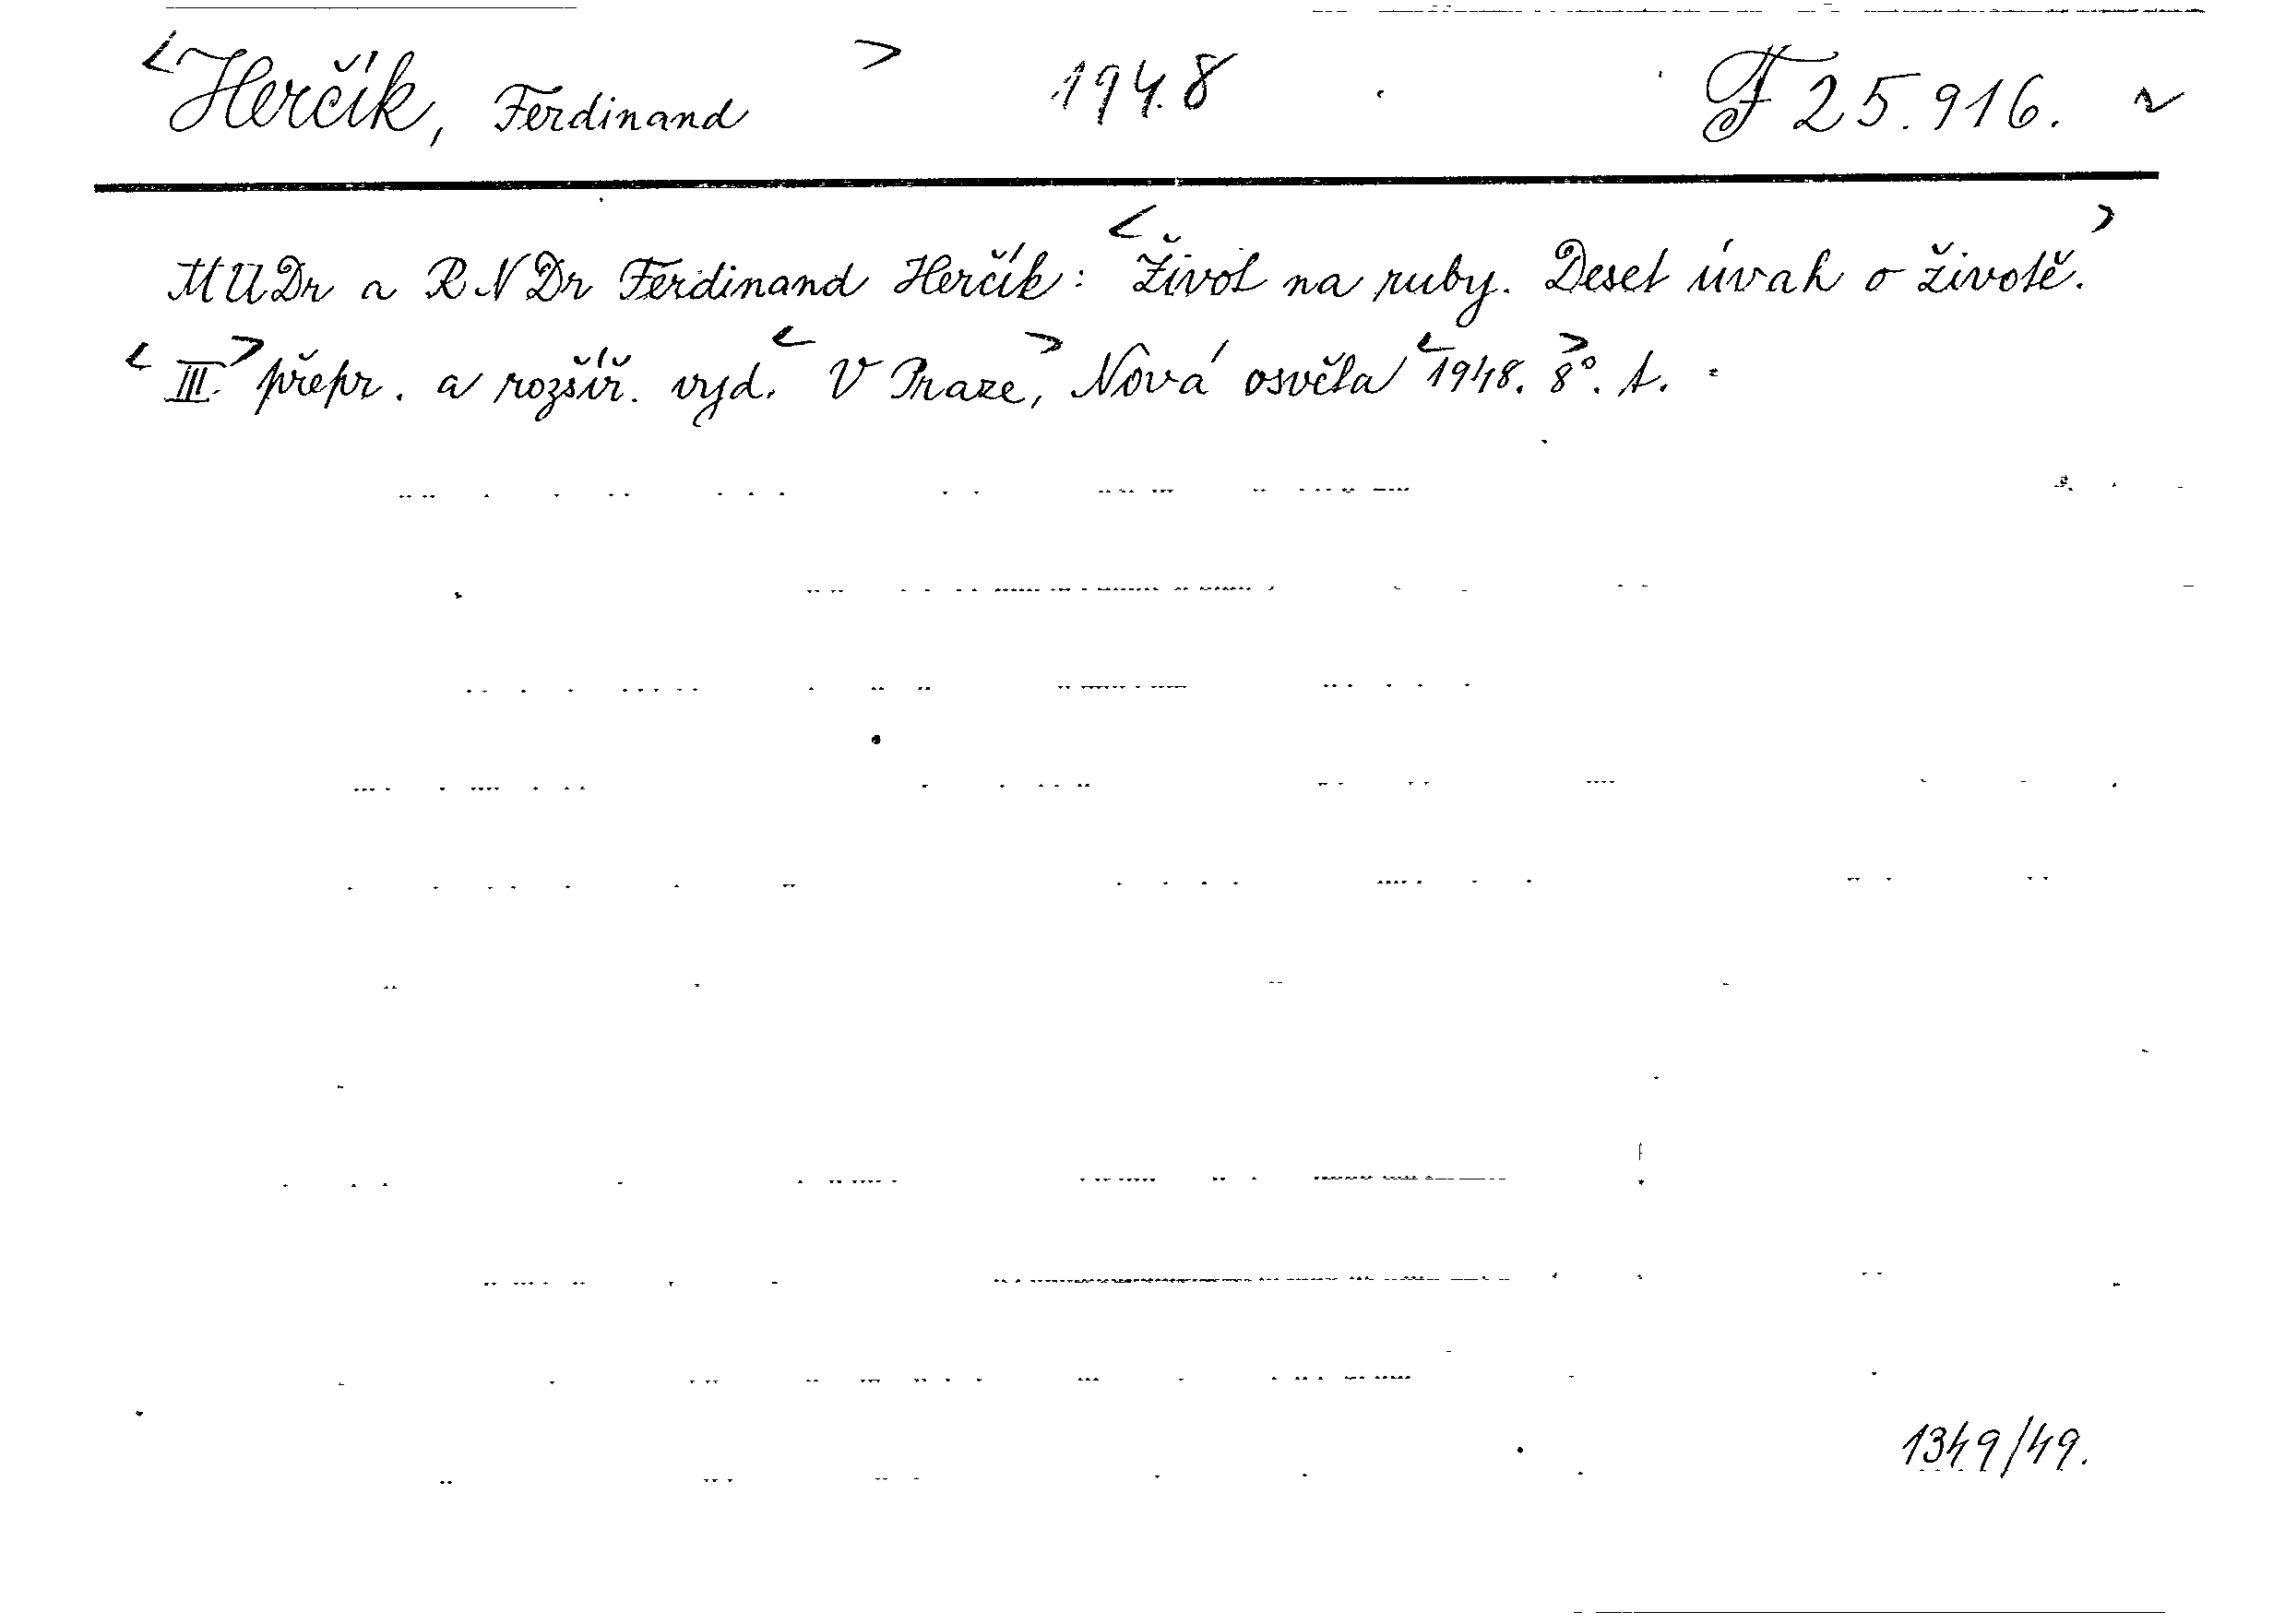 <Herčík, Ferdinand> 1948 F 25.916.
MUDr a RNDr Ferdinand Herčík: <Život na ruby. Deset úvah o životě.>
<III.> přepr. a rozšíř. vyd. <V Praze,> Nová osvěta <1948. 8°.> t.
1349/49.